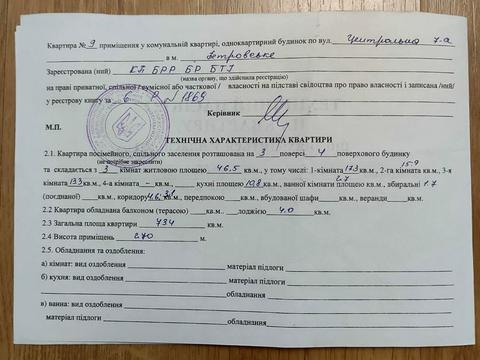 Квартира № 9 приміщення у комунальній квартирі, одноквартирний будинок по вул. Центральна 7-а
в м. Петровське
Зареєстрована (ний) КП БРР БР БТІ
(назва органу, що здійснила реєстрацію)
на праві приватної, спільної / сумісної або часткової / власності на підставі свідоцтва про право власності і записана /ний/
у реєстрову книгу за № 1869
Керівник
М.П.
ТЕХНІЧНА ХАРАКТЕРИСТИКА КВАРТИРИ
2.1. Квартира посімейного, спільного заселення розташована на 3 поверсі 4 поверхового будинку
(не потрібне закреслити)
та складається з 3 кімнат житловою площею 46,5 кв.м., у тому числі: 1-кімната 17,3 кв.м., 2-га кімната 15,9 кв.м., 3-я
кімната 13,3 кв.м., 4-а кімната – кв.м., кухні площею 10,8 кв.м., ванної кімнати площею 2,7 кв.м., вбиральні 1,7
(поєднаної) кв.м., коридору кв.м., передпокою кв.м., вбудованої шафи кв.м., веранди кв.м.
2.2 Квартира обладнана балконом (терасою) кв.м., лоджією 4.0 кв.м.
2.3 Загальна площа квартири 73,4 кв.м.
2.4 Висота приміщень 2.70 м.
2.5. Обладнання та оздоблення:
а) кімнат: вид оздоблення матеріал підлоги
б) кухня: вид оздоблення матеріал підлоги
обладнання
в) ванна: вид оздоблення
матеріал підлоги обладнання